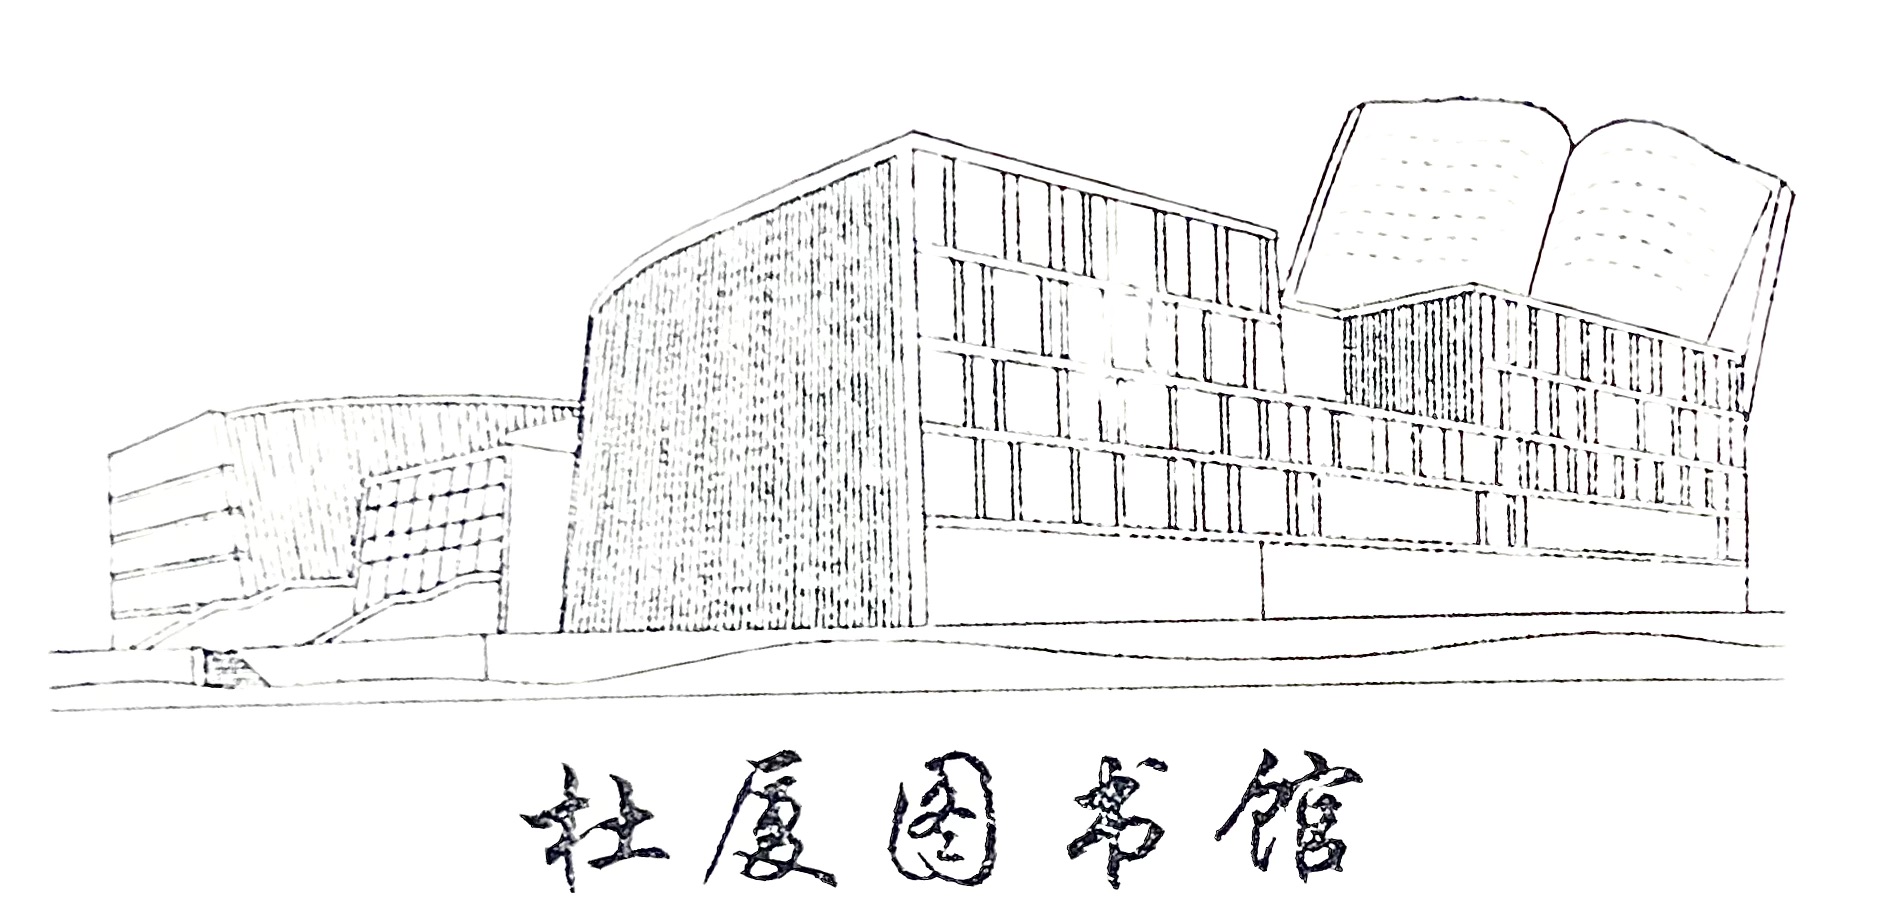 杜厦图书馆